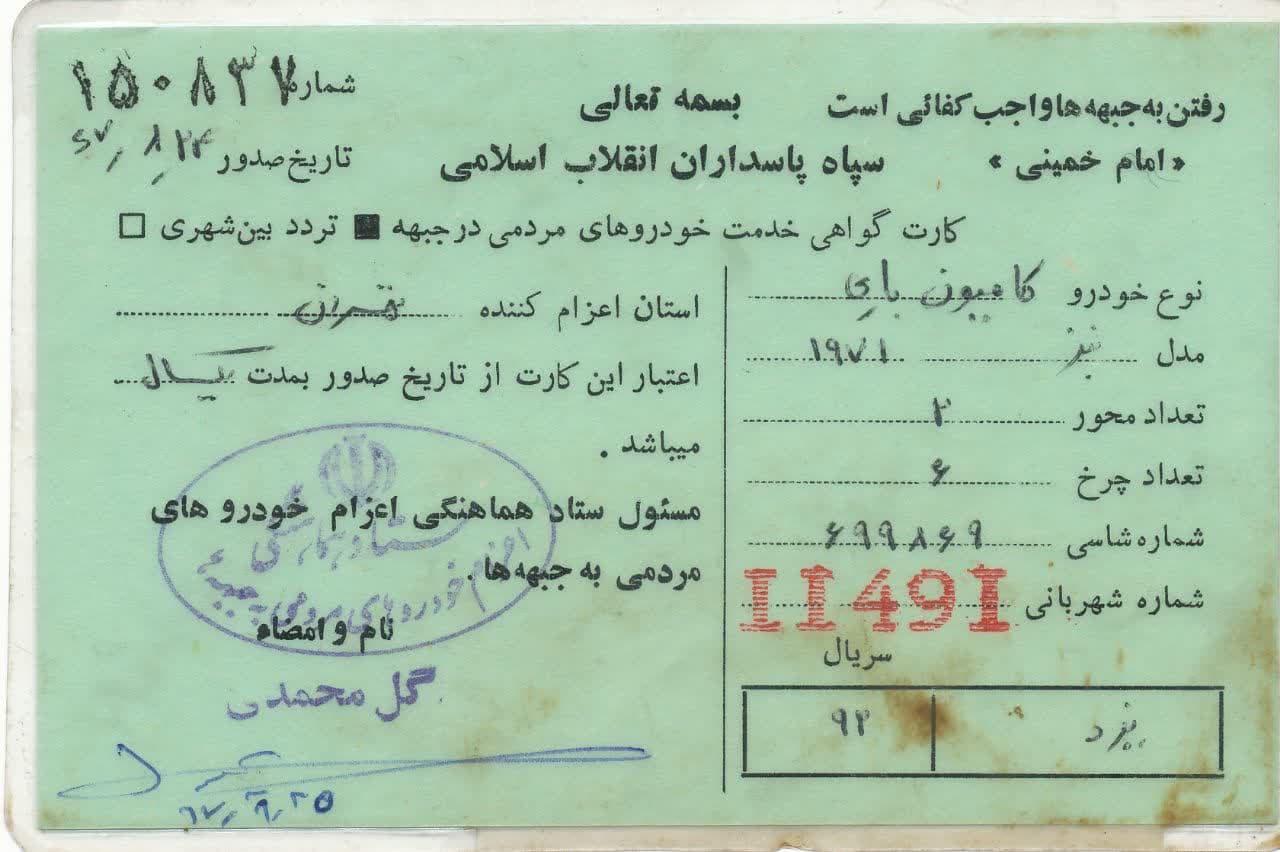 رفتن به جبهه ها واجب کفائی است
« امام خمینی »
بسمه تعالی
سپاه پاسداران انقلاب اسلامی
شماره ۱۵۰۸۳۷
تاریخ صدور ۶۷/۸/۲۴
کارت گواهی خدمت خودروهای مردمی در جبهه ■ تردد بین شهری □
نوع خودرو کامیون باری
مدل بنز ۱۹۷۱
تعداد محور ۲
تعداد چرخ ۶
شماره شاسی ۶۹۹۸۶۹
شماره شهربانی 11491
سریال
یزد ۹۲
استان اعزام کننده
اعتبار این کارت از تاریخ صدور بمدت یکسال
میباشد .
مسئول ستاد هماهنگی اعزام خودرو های
مردمی به جبهه‌ها .
نام و امضاء
ستاد هماهنگی
اعزام خودروهای مردمی به جبهه ها
گل محمدی
۶۷/۹/۲۵